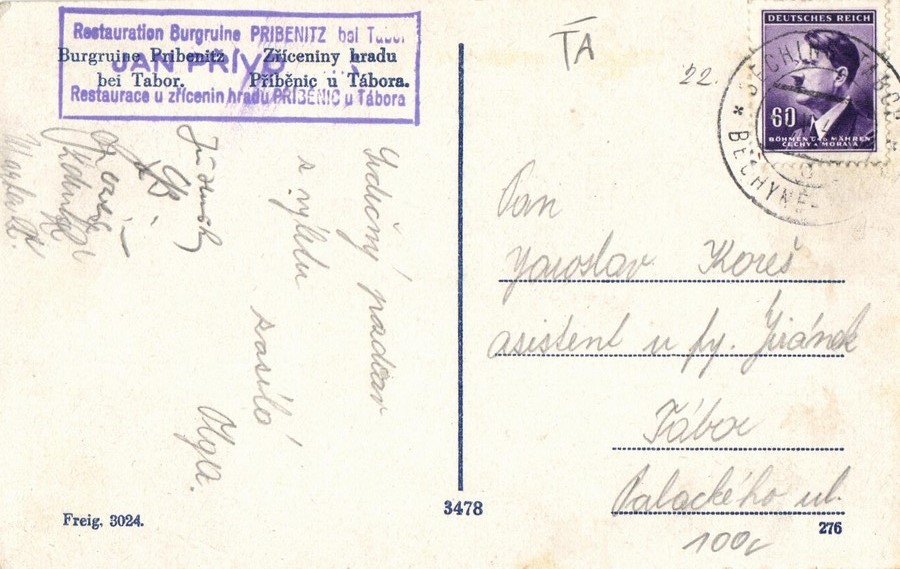 Restauration Burgruine PRIBENITZ bei Tabor
Burgruine Pribenitz
bei Tabor.
Zříceniny hradu
Příběnic u Tábora.
JAN PŘÍVO
Restaurace u zřícenin hradu PŘÍBĚNIC u Tábora
Srdečný pozdrav
s výletu
zasílá
Olga.
TA
22.
DEUTSCHES REICH
60
BÖHMEN U. MÄHREN
ČECHY A MORAVA
BECHYNĚ
Pan
Jaroslav Koreš
asistent u fy. Jiránek
Tábor
Palackého ul.
100
Freig. 3024.
3478
276